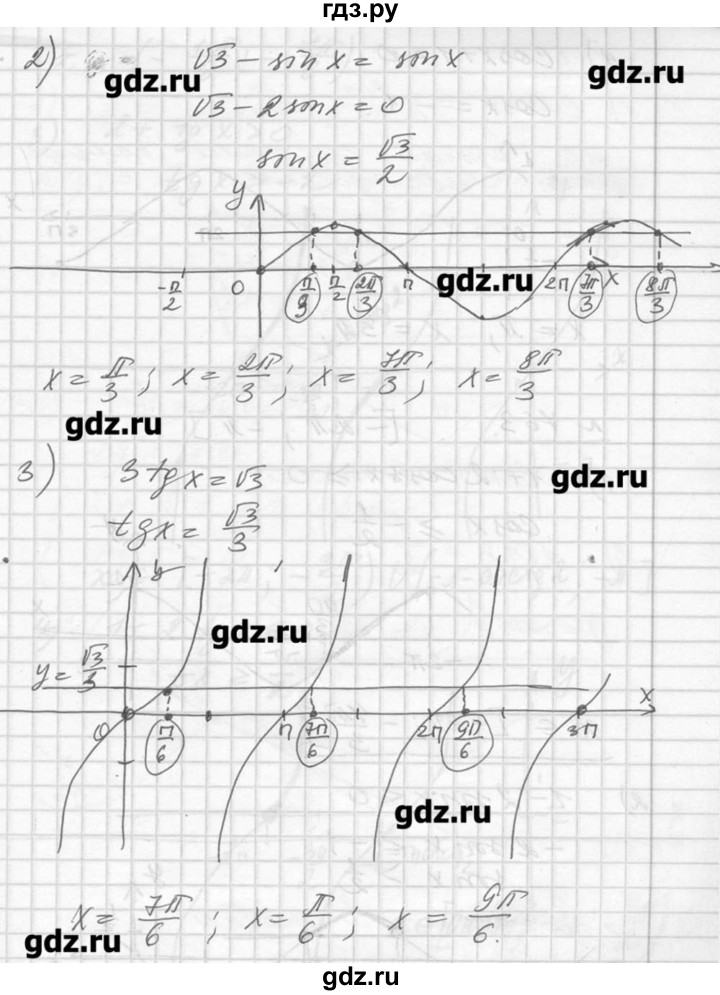 гдз.ру
2) √3 - sin x = sin x
gdz.ru gdz.ru
√3 - 2 sin x = 0
sin x = √3/2
y
-π/2 0 π/9 π/2 2π/3 π gdz.ru 2π 7π/3 x 8π/3
x = π/3 ; x = 2π/3 ; x = 7π/3 ; x = 8π/3
gdz.ru
3) 3 tg x = √3
gdz.ru
tg x = √3/3
y
gdz.ru
y = √3/3
x
0 π/6 π 7π/6 2π 9π/6 3π
gdz.ru
x = 7π/6 ; x = π/6 ; x = 9π/6.
gdz.ru
gdz.ru